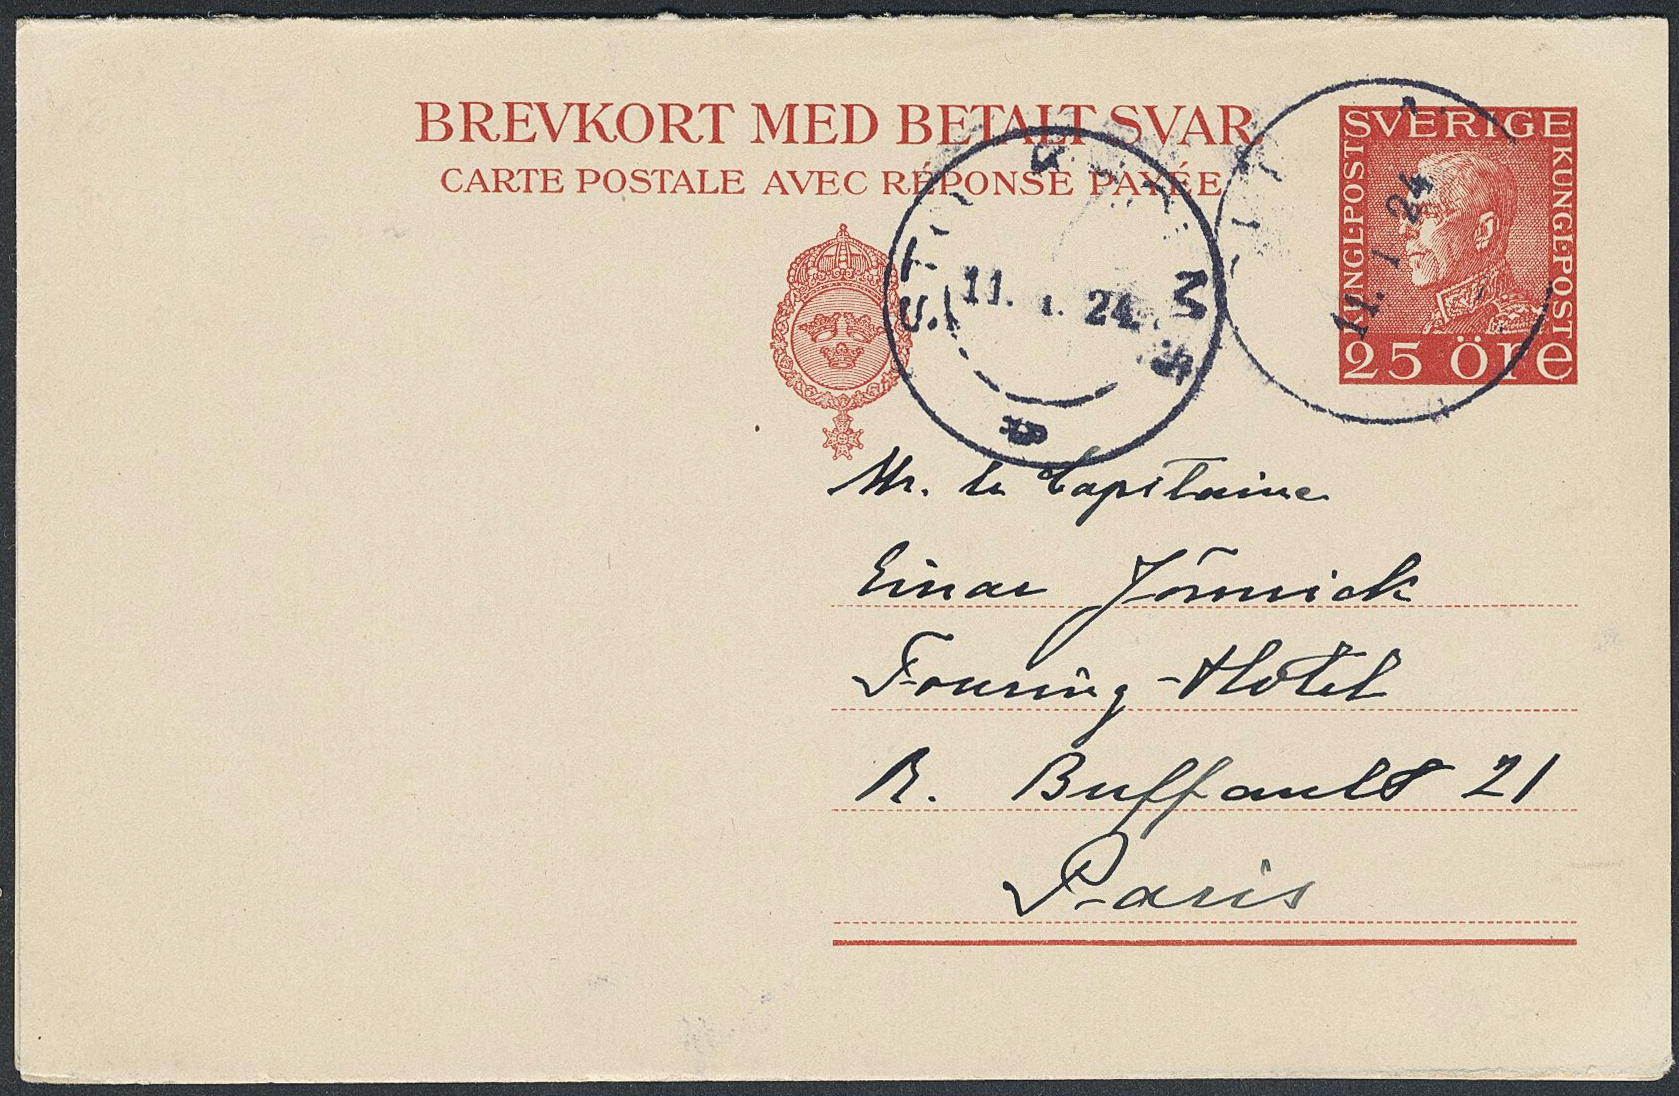 BREVKORT MED BETALT SVAR.
CARTE POSTALE AVEC RÉPONSE PAYÉE
SVERIGE
KUNGL·POST
KUNGL·POST
25 ÖRE
11. 1. 24
STOCKHOLM
11. 1. 24
Mr. le Capitaine
Einar
Touring-Hotel
R. Buffault 21
Paris